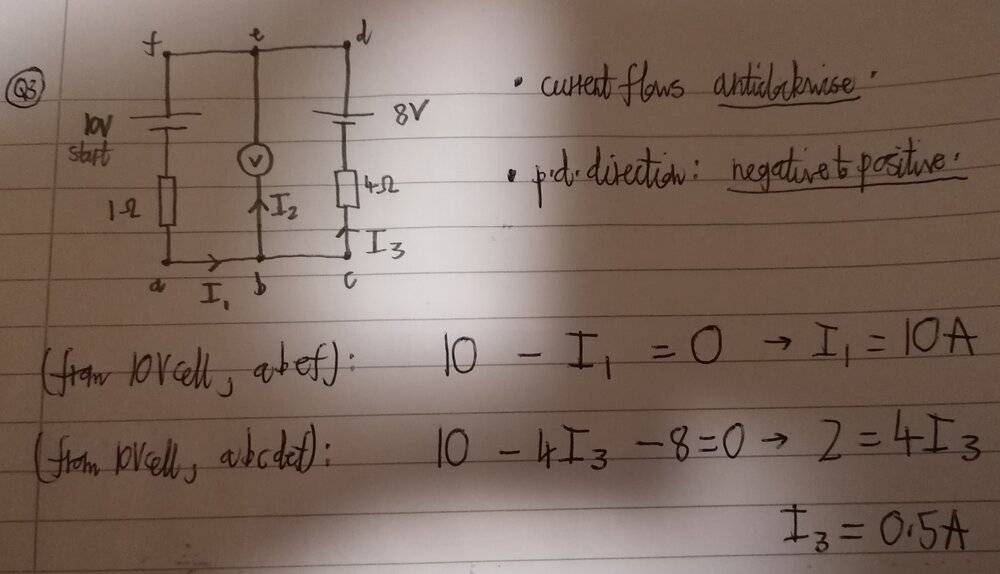 Q3
f e d
10V
start
8V
1Ω
V
4Ω
I₂
I₃
a b c
I₁
• current flows anticlockwise.
• p.d. direction: negative to positive.
(from 10V cell, abef): 10 - I₁ = 0 → I₁ = 10A
(from 10V cell, abcdef): 10 - 4I₃ - 8 = 0 → 2 = 4I₃
I₃ = 0.5A